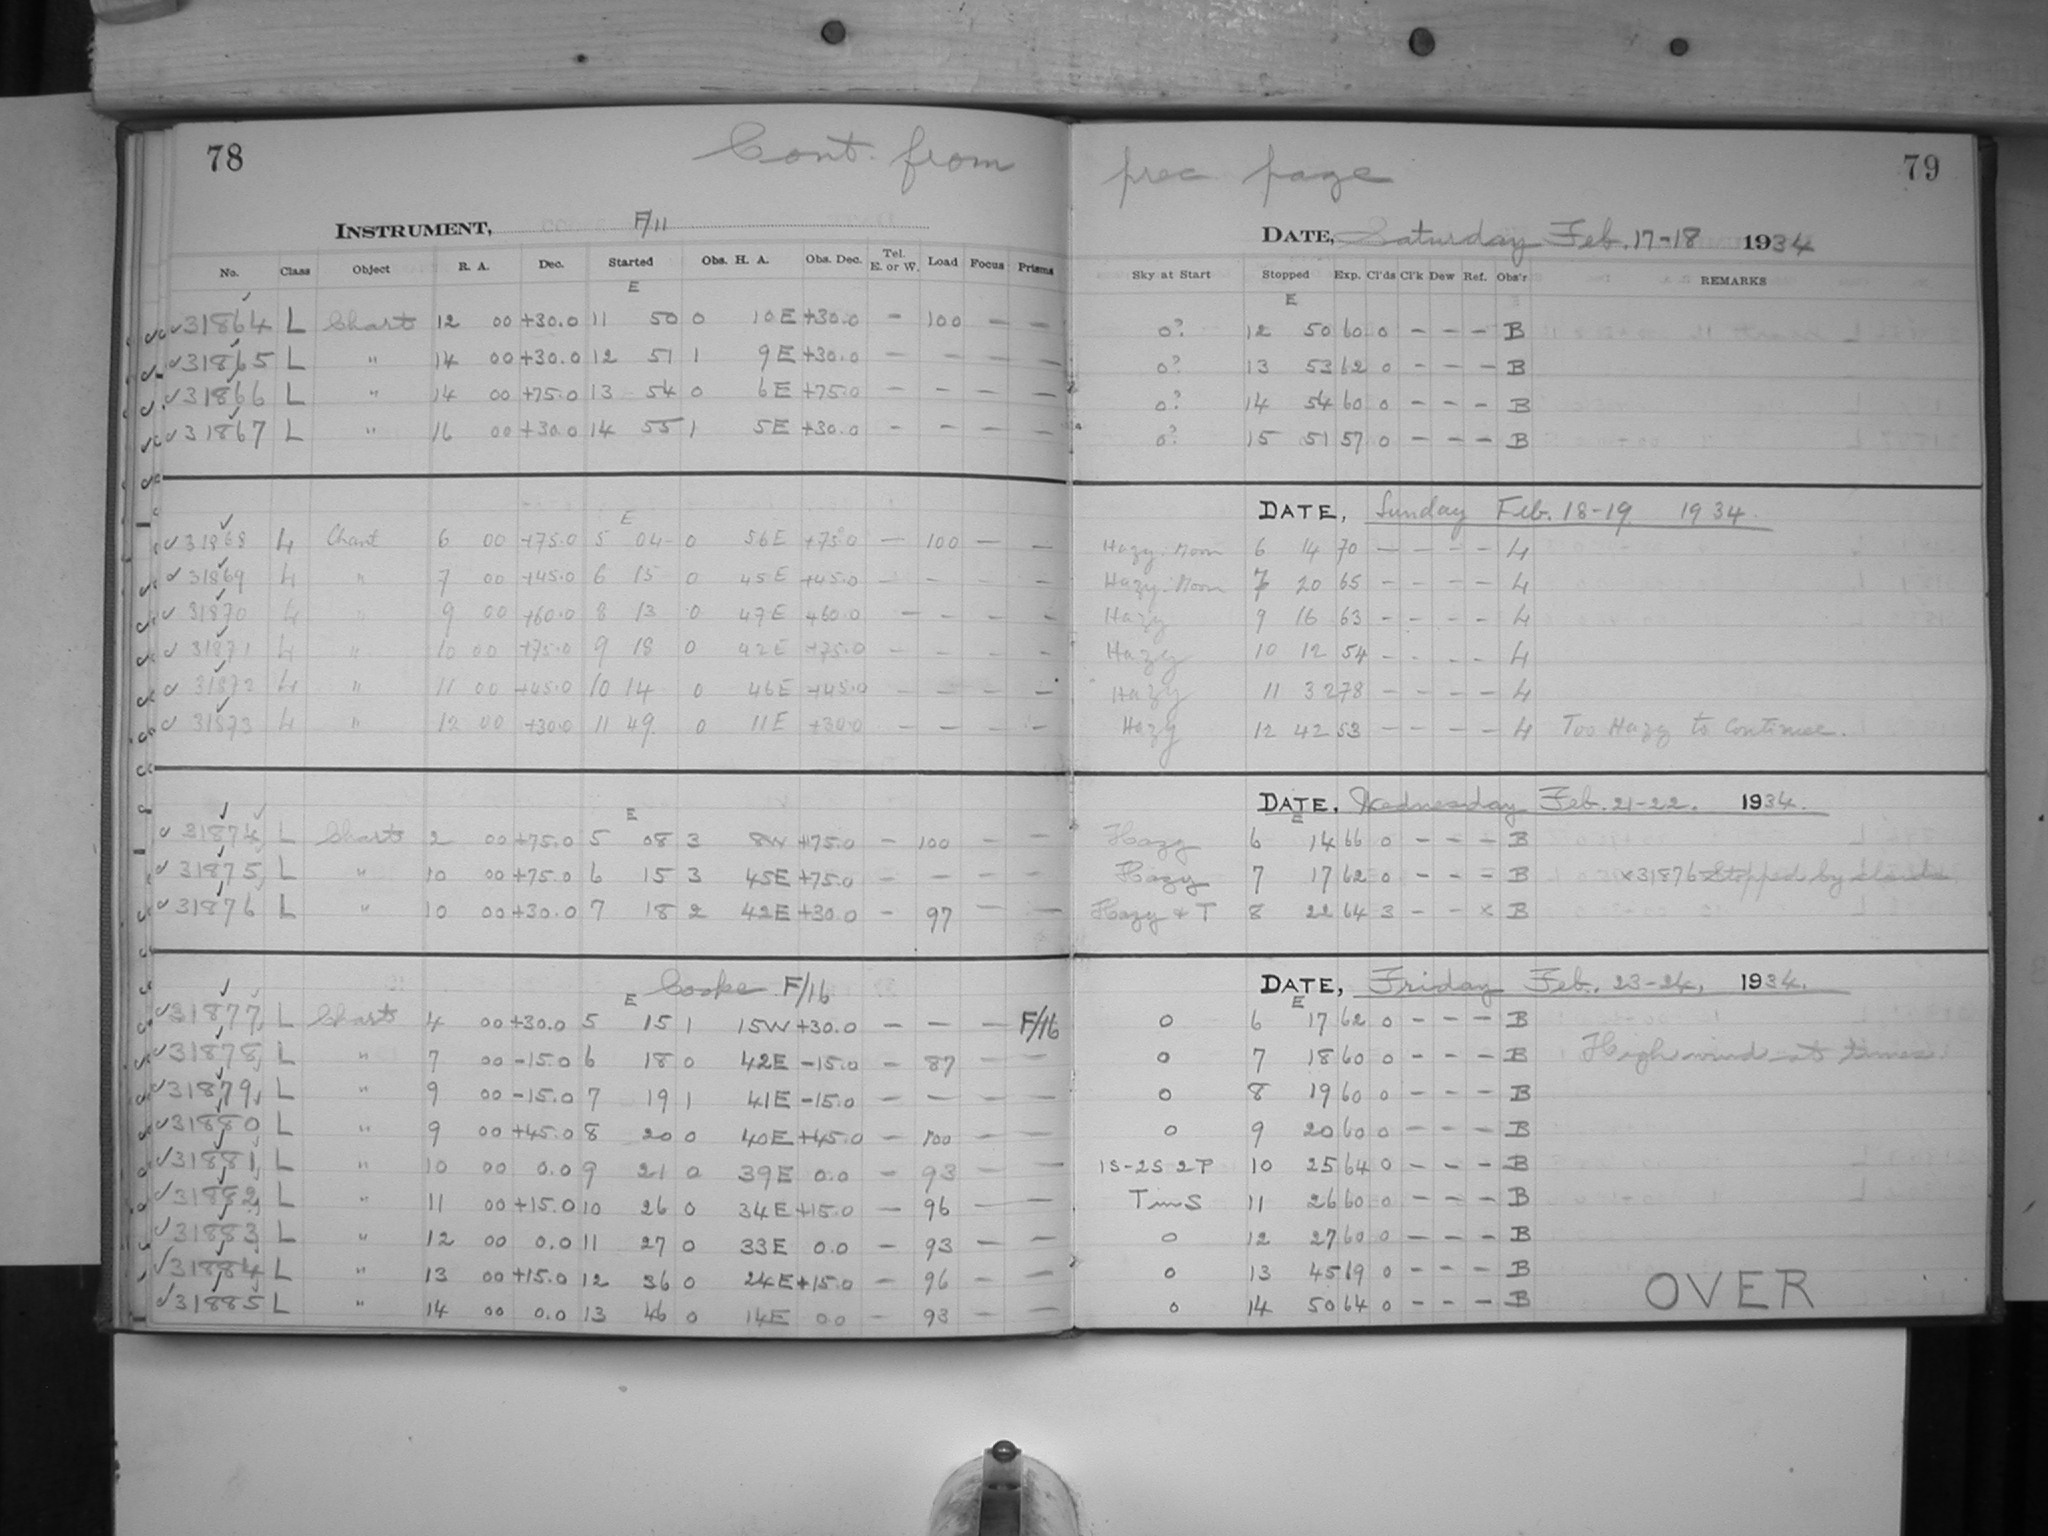 78
Cont. from prec page
79
INSTRUMENT, F/11 DATE, Saturday Feb. 17-18 1934
No. Class Object R. A. Dec. Started Obs. H. A. Obs. Dec. Tel. E. or W. Load Focus Prisms Sky at Start Stopped Exp. Cl'ds Cl'k Dew Ref. Obs'r REMARKS
E E
31864 L Chart 12 00 +30.0 11 50 0 10E +30.0 - 100 - - 0? 12 50 60 0 - - - B
31865 L " 14 00 +30.0 12 51 1 9E +30.0 - - - - 0? 13 53 62 0 - - - B
31866 L " 14 00 +75.0 13 54 0 6E +75.0 - - - - 0? 14 54 60 0 - - - B
31867 L " 16 00 +30.0 14 55 1 5E +30.0 - - - - 0? 15 51 57 0 - - - B
DATE, Sunday Feb. 18-19 1934
E
31868 L Chart 6 00 +75.0 5 04 0 56E +75.0 - 100 - - Hazy. Moon 6 14 70 - - - - L
31869 L " 7 00 +45.0 6 15 0 45E +45.0 - - - - Hazy. Moon 7 20 65 - - - - L
31870 L " 9 00 +60.0 8 13 0 47E +60.0 - - - - Hazy 9 16 63 - - - - L
31871 L " 10 00 +75.0 9 18 0 42E +75.0 - - - - Hazy 10 12 54 - - - - L
31872 L " 11 00 +45.0 10 14 0 46E +45.0 - - - - Hazy 11 32 78 - - - - L
31873 L " 12 00 +30.0 11 49 0 11E +30.0 - - - - Hazy 12 42 53 - - - - L Too Hazy to Continue.
DATE, Wednesday Feb. 21-22. 1934.
E E
31874 L Charts 2 00 +75.0 5 08 3 8W +75.0 - 100 - - Hazy 6 14 66 0 - - - B
31875 L " 10 00 +75.0 6 15 3 45E +75.0 - - - - Hazy 7 17 62 0 - - - B x31876 Stopped by clouds
31876 L " 10 00 +30.0 7 18 2 42E +30.0 - 97 - - Hazy + T 8 22 64 3 - - x B
Cooke F/16 DATE, Friday Feb. 23-24, 1934.
E E
31877 L Charts 4 00 +30.0 5 15 1 15W +30.0 - - - F/16 0 6 17 62 0 - - - B
31878 L " 7 00 -15.0 6 18 0 42E -15.0 - 87 - - 0 7 18 60 0 - - - B High wind at times.
31879 L " 9 00 -15.0 7 19 1 41E -15.0 - - - - 0 8 19 60 0 - - - B
31880 L " 9 00 +45.0 8 20 0 40E +45.0 - 100 - - 0 9 20 60 0 - - - B
31881 L " 10 00 0.0 9 21 0 39E 0.0 - 93 - - 1S-2S 2P 10 25 64 0 - - - B
31882 L " 11 00 +15.0 10 26 0 34E +15.0 - 96 - - T in S 11 26 60 0 - - - B
31883 L " 12 00 0.0 11 27 0 33E 0.0 - 93 - - 0 12 27 60 0 - - - B
31884 L " 13 00 +15.0 12 36 0 24E +15.0 - 96 - - 0 13 45 69 0 - - - B
31885 L " 14 00 0.0 13 46 0 14E 0.0 - 93 - - 0 14 50 64 0 - - - B
OVER